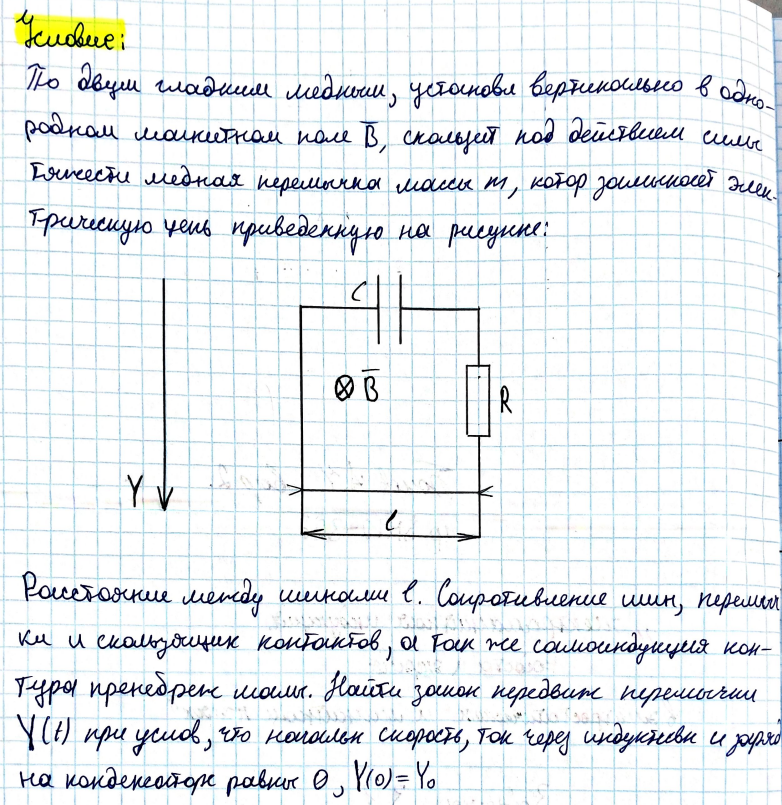 Условие:
По двум гладким медным, установл вертикально в одно-
родном магнитном поле B̄, скользит под действием силы
тяжести медная перемычка массы m, котор замыкает элек-
трическую цепь приведенную на рисунке:
C
⊗ B̄
R
Y
l
Расстояние между шинами l. Сопротивление шин, перемыч
ки и скользящих контактов, а так же самоиндукция кон-
тура пренебреж малы. Найти закон передвиж перемычки
Y(t) при услов, что начальн скорость, ток через индуктивн и заряд
на конденсаторе равны 0, Y(0)=Y₀